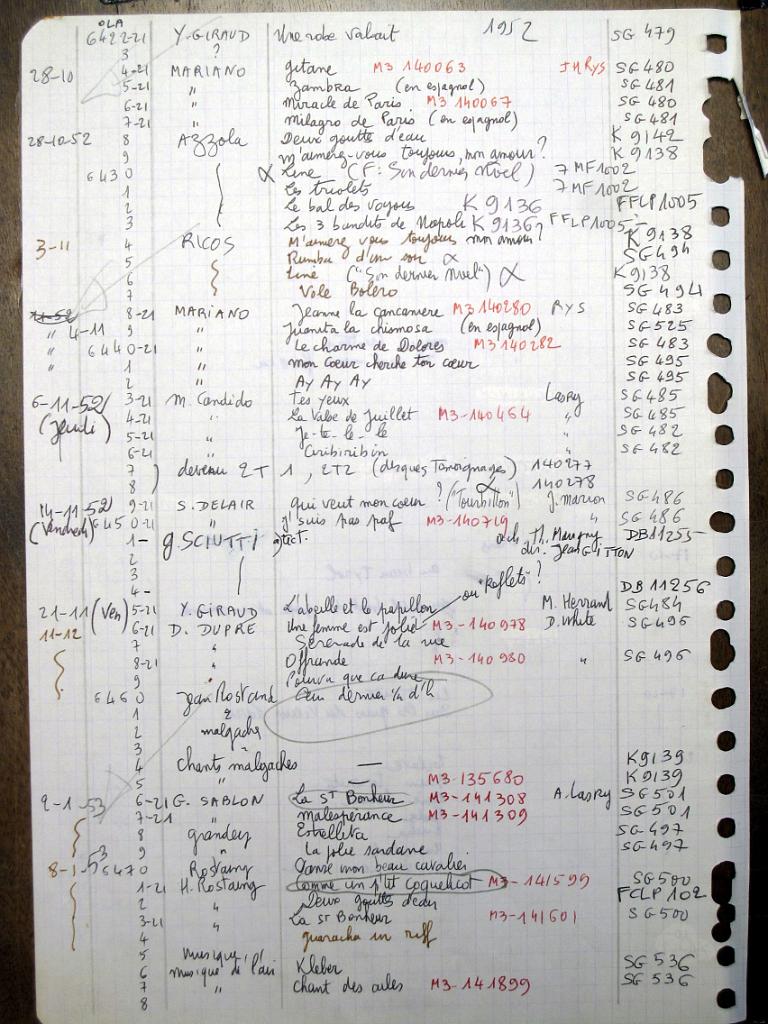 OLA
6422-21 Y. GIRAUD Une robe valsait 1952 SG 479
3 ?
28-10 4-21 MARIANO gitane M3 140063 J H Rys SG 480
5-21 " Zambra (en espagnol) SG 481
6-21 " Miracle de Paris M3 140067 SG 480
7-21 " Milagro de Paris (en espagnol) SG 481
28-10-52 8 Azzola Deux gouttes d'eau K 9142
9 m'aimerez-vous toujours, mon amour? K 9138
6430 α Line (F: Son dernier Noël) 7 MF 1002
1 Les triolets 7 MF 1002
2 Le bal des voyous K 9136 FFLP 1005
3 Les 3 bandits de Napoli K 9136? FFLP 1005
3-11 4 RICOS M'aimerez vous toujours mon amour? K 9138
5 Rumba d'un soir α SG 494
6 Line ("Son dernier Noel") α K 9138
7 Vole Bolero SG 494
11-52 8-21 MARIANO Jeanne la cancanière M3 140280 RYS SG 483
" 4-11 9 " Juanita la chismosa (en espagnol) SG 525
" 6440-21 " Le charme de Dolores M3 140282 SG 483
" 1 " mon coeur cherche ton coeur SG 495
2 " AY AY AY SG 495
6-11-52 3-21 M. Candido tes yeux Lasry SG 485
(Jeudi) 4-21 " La Valse de Juillet M3-140464 " SG 485
5-21 " Je-te-le-le " SG 482
6-21 " Ciribiribin " SG 482
7 ) deveau 2T 1, 2T2 (disques Témoignages) 140277
8 ) 140278
14-11-52 9-21 S. DELAIR qui veut mon coeur? ("Tourbillon") α J. Marion SG 486
(Vendredi) 6450-21 " j'suis pas paf M3-140719 " SG 486
1- G. SCIUTTI orch. Th. Maugny DB 11255
2 dir. Jean GITTON
3
4- ou "Reflets"? DB 11256
21-11 (Ven) 5-21 Y. GIRAUD L'abeille et le papillon M. Herrand SG 484
11-12 6-21 D. DUPRE Une femme est jolie M3-140978 D. White SG 496
7 " Sérénade de la rue
8-21 " Offrande M3-140980 " SG 496
9 Pourvu que ca dure
6460 Jean Rostand Ceu dernier 1/4 d'h
1 2
2 malgache
3 "
4 Chants malgaches — K 9139
5 " — M3-135680 K 9139
2-1-53 6-21 G. SABLON La St Bonheur M3-141308 A. Lasry SG 501
7-21 " Malespérance M3-141309 SG 501
8 grandey Estrellita SG 497
9 " La jolie sardane SG 497
8-1-53 6470 Rostaing Danse mon beau cavalier
1-21 H. Rostaing Comme un p'tit coquelicot M3-141599 SG 500
2 " Deux gouttes d'eau FCLP 102
3-21 " La St Bonheur M3-141601 SG 500
4 guaracha in riff
5 musique
6 musique de l'air Kleber SG 536
7 " Chant des ailes M3-141899 SG 536
8